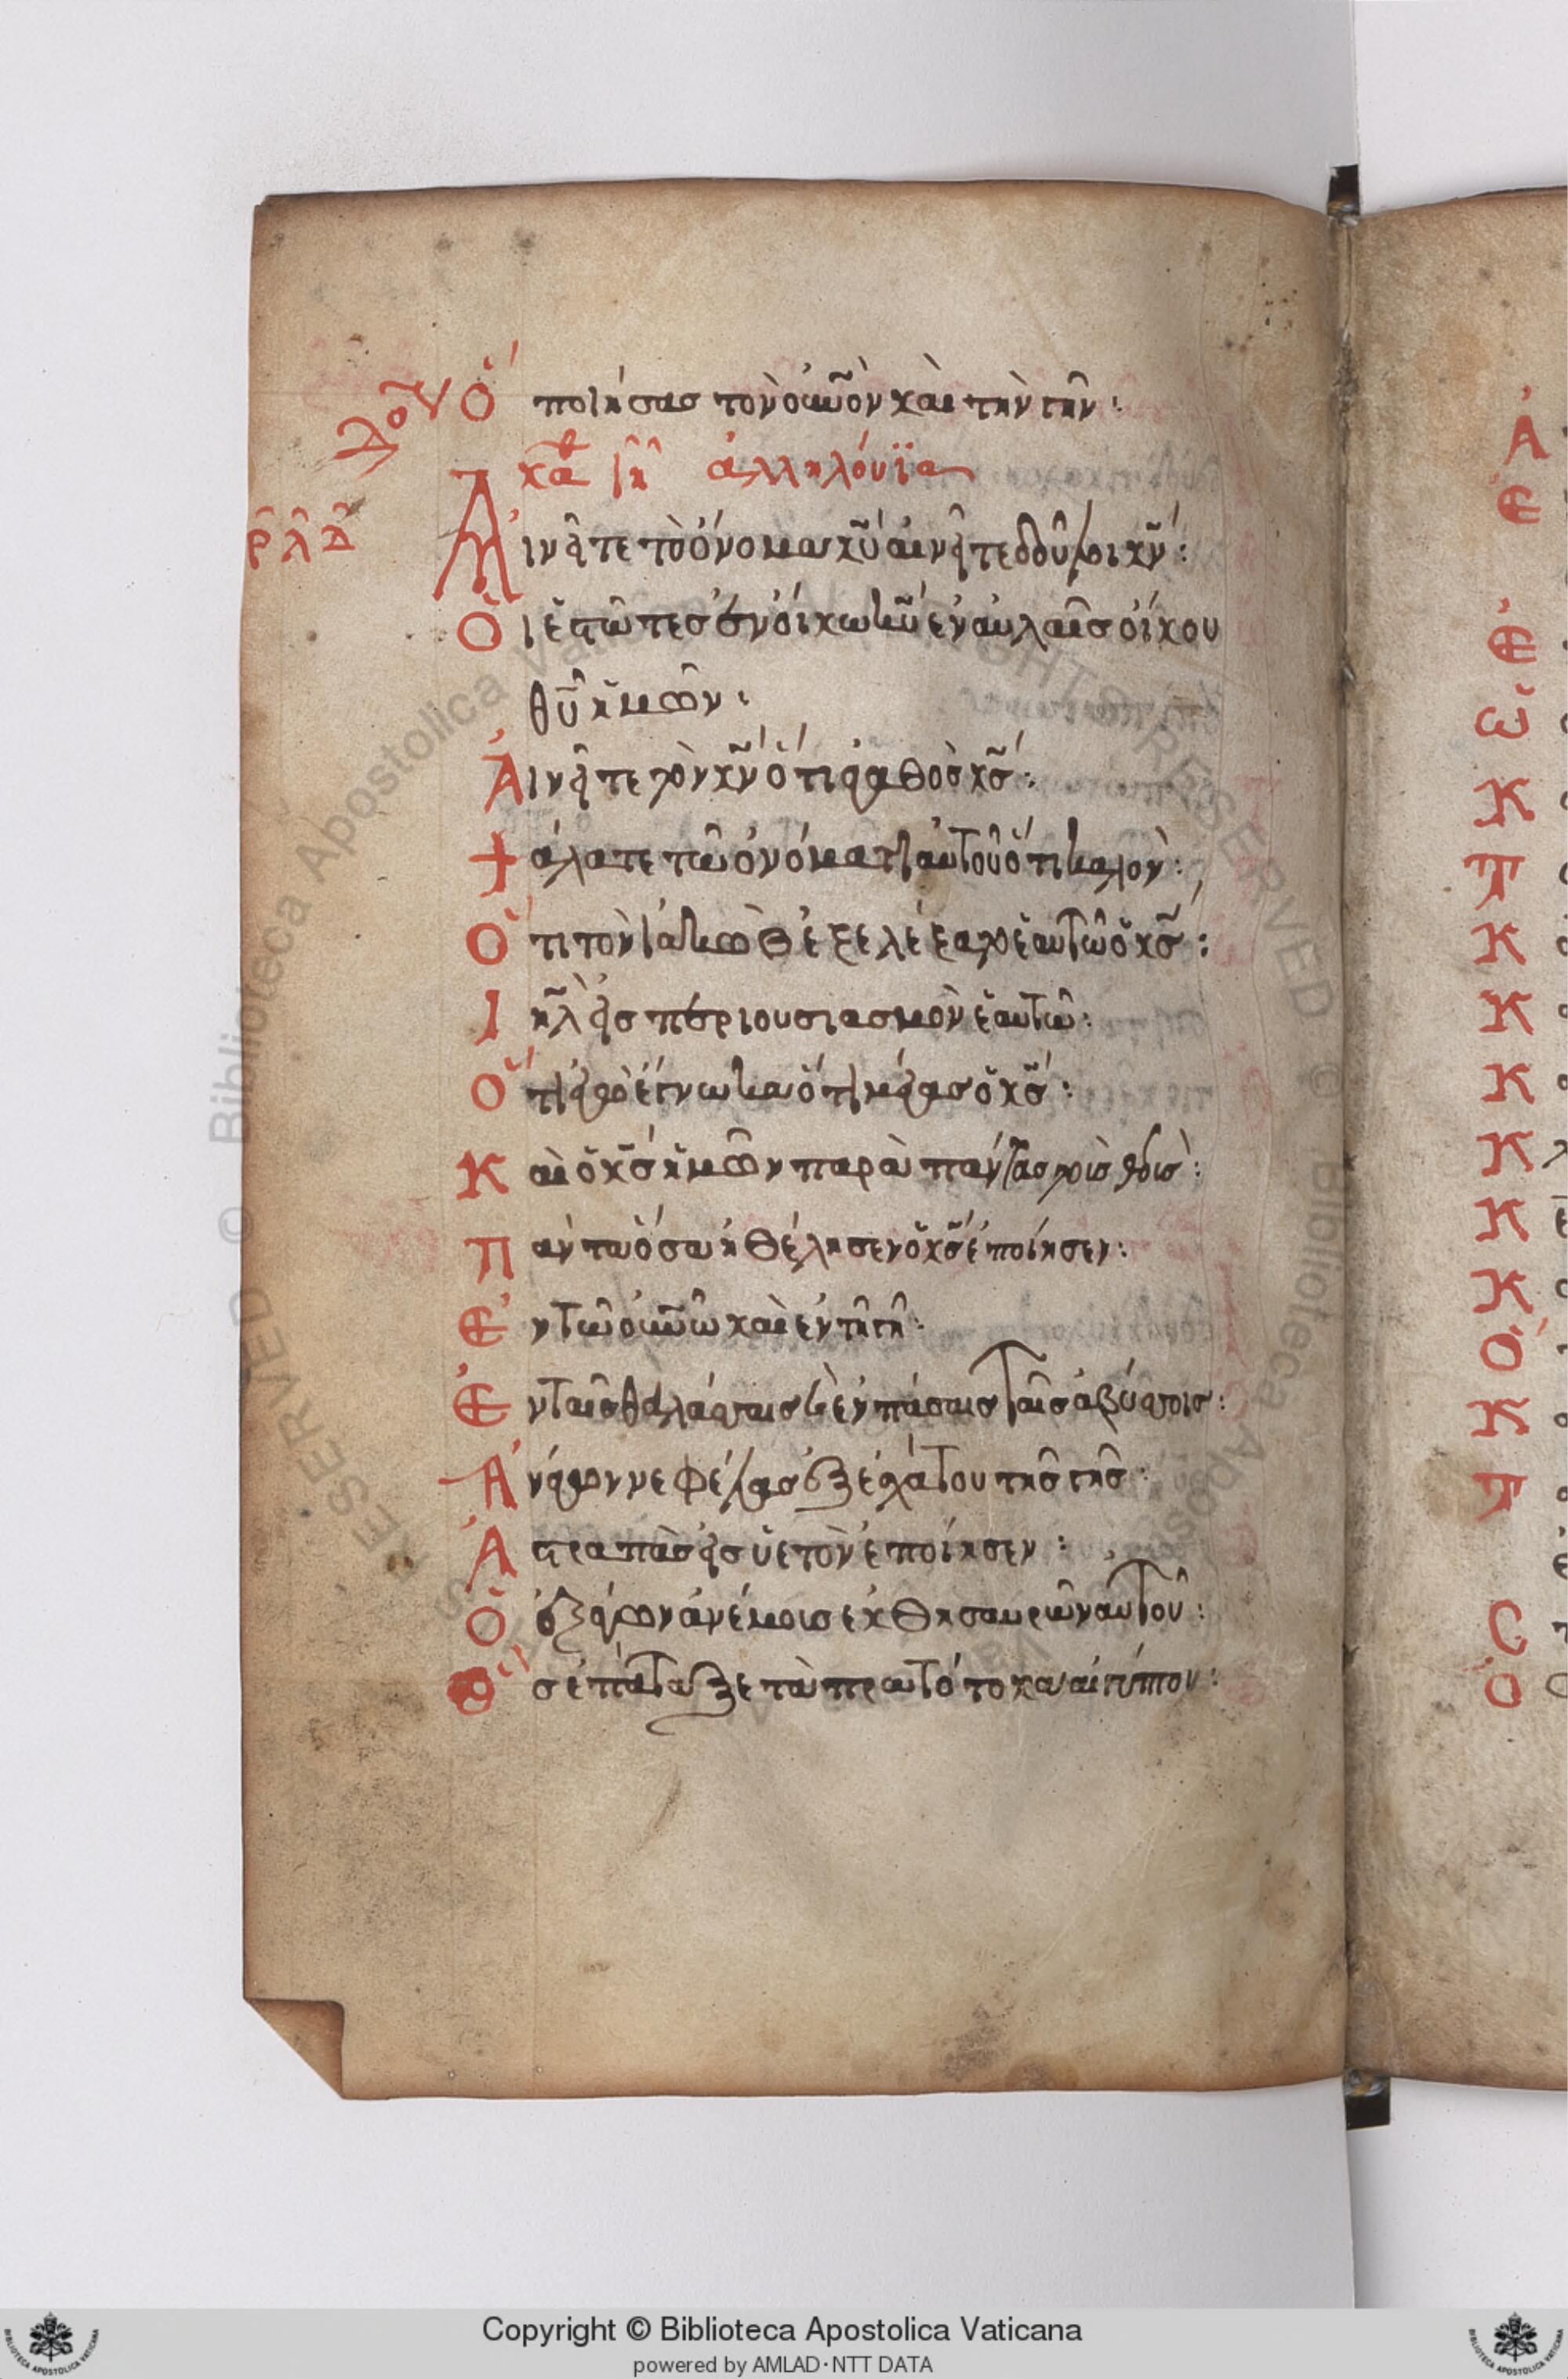 Ὁ ποιήσας τὸν οὐνὸν καὶ τὴν γῆν:
ἀλληλούϊα
ρλδ Αἰνεῖτε τὸ ὄνομα κυ αἰνεῖτε δοῦλοι κν:
Οἱ ἑστῶτες ἐν οἴκω κυ ἐν αὐλαῖς οἴκου
θυ ἡμῶν:
Αἰνεῖτε τὸν κν ὅτι ἀγαθὸς κς:
Ψάλατε τῶ ὀνόματι αὐτοῦ ὅτι καλόν:
Ὅτι τὸν ἰακὼβ ἐξελέξατο ἑαυτῶ ὁ κς:
Ιηλ εἰς περιουσιασμὸν ἑαυτῶ:
Ὅτι ἐγὼ ἔγνωκα ὅτι μέγας ὁ κς:
Καὶ ὁ κς ἡμῶν παρὰ πάντας τοὺς θεούς:
Πάντα ὅσα ἠθέλησεν ὁ κς ἐποίησεν:
Ἐν τῶ οὐνῶ καὶ ἐν τῆ γῆ:
Ἐν ταῖς θαλάσσαις καὶ ἐν πάσαις ταῖς ἀβύσσοις:
Ἀνάγων νεφέλας ἐξ ἐσχάτου τῆς γῆς:
Ἀστραπὰς εἰς ὑετὸν ἐποίησεν:
Ὁ ἐξάγων ἀνέμους ἐκ θησαυρῶν αὐτοῦ:
Ὃς ἐπάταξε τὰ πρωτότοκα αἰγύπτου:
Copyright © Biblioteca Apostolica Vaticana
powered by AMLAD·NTT DATA